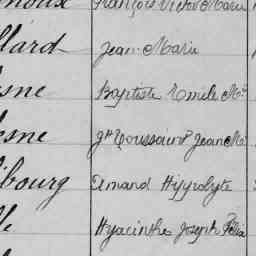 François Victor Marie
llard Jean Marie
sne Baptiste Emile M.
esne Jh Toussaint Jean M.
ibourg Amand Hippolyte
lle Hyacinthe Joseph Félix